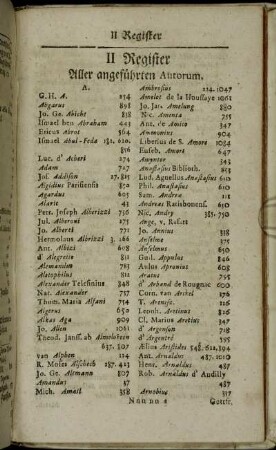 II Register
II Register
Aller angeführten Autorum.
A.
G. H. A. 254
Abgarus 898
Jo. Ge. Abicht 838
Ismael ben Abraham 443
Ericus Abrot 564
Ismael Abul-Feda 181. 620.
816
Luc. d'Achery 254
Adam 377
Jul. Addison 27. 815
Ægidius Parisiensis 550
Agardus 605
Alarit 43
Petr. Joseph Alberizzi 750
Jul. Alberoni 375
Jo. Alberti 771
Hermolum Albritzi 3. 166
Ant. Albizi 608
d'Alegretio 811
Alemannus 793
Alatophilus 811
Alexander Telesinius 348
Nat. Alexander 737
Thom. Maria Alfani 754
Algerus 650
Alkas Aga 909
Jo. Allen 1061
Theod. Janss. ab Almeloveen
637. 807
van Alphen 124
R. Moses Alschech 187. 413
Jo. Ge. Altmann 780
Amandus 37
Mich. Amati 358
Ambrosius 224. 1047
Amelot de la Houssaye 1061
Jo. Jac. Amelung 880
Nic. Amenta 755
Ant. de Amico 347
Ammonius 904
Liberius de S. Amore 1084
Euseb. Amort 647
Amyntor 343
Anastasius Biblioth. 341
Lud. Agnellus Anastasius 610
Phil. Anastasius 610
Sam. Andreæ 111
Andreas Ratisbonens. 610
Nic. Andry 385. 750
Ange. v. Rafart
Jo. Annius
Anselme 375
Anselmus 650
Guil. Appulus 346
Aulus Apronius 808
Aratus 795
d'Arband de Rougnac 600
Corn. van Arckel 376
V. Arenese 716
Leonh. Aretinus 816
Cl. Marius Aretius 347
d'Argenson 708
d'Argentré 555
Ælius Aristides 548. 622. 894
Ant. Arnaldus 487. 1010
Henr. Arnaldus 487
Rob. Arnaldus d'Audilly
487
Arnobius 317
Nnnn 4
Gottfr.